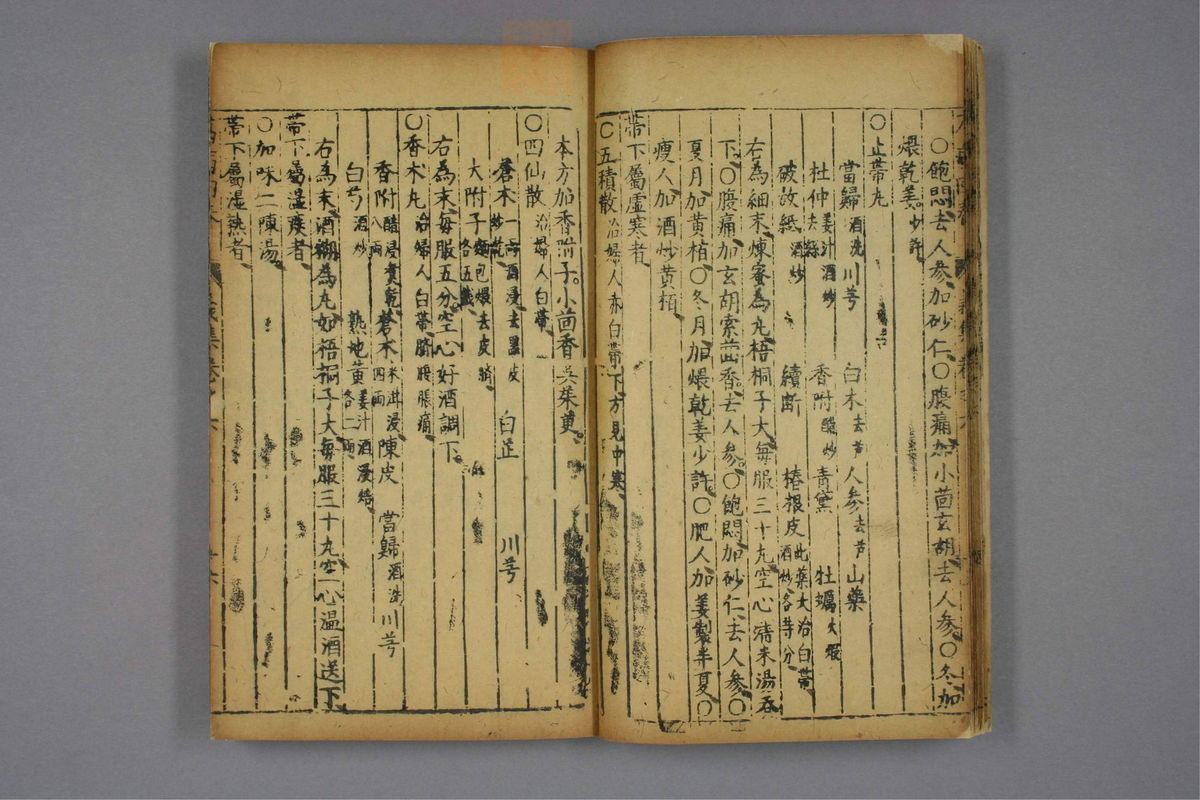 ○飽悶去人参加砂仁○腹痛加小茴玄胡去人参○冬加
煨乾姜少許
○止帶丸
當歸酒洗 川芎 白朮去芦 人参去芦 山藥
杜仲姜汁酒炒去絲 香附醋炒 青黛 牡蠣火煆
破故紙酒炒 續斷 椿根皮酒炒 此藥大治白帶各等分
右為細末煉蜜為丸梧桐子大每服三十丸空心清米湯吞
下○腹痛加玄胡索茴香去人参○飽悶加砂仁去人参○
夏月加黄栢○冬月加煨乾姜少許○肥人加姜製半夏○
瘦人加酒炒黄栢
帶下屬虚寒者
○五積散治婦人赤白帶下方見中寒
本方加香附子小茴香吳茱萸
○四仙散治婦人白帶
蒼朮一兩酒浸去黑皮炒乾 白芷 川芎
大附子麵包煨去皮臍各五錢
右為末每服五分空心好酒調下
○香朮丸治婦人白帶臍腰脹痛
香附醋浸煑乾八兩 蒼朮米泔浸四兩 陳皮 當歸酒洗 川芎
白芍酒炒 熟地黄姜汁酒浸焙各二兩
右為末酒糊為丸如梧桐子大每服三十丸空心温酒送下
帶下屬濕痰者
○加味二陳湯
帶下屬濕熱者